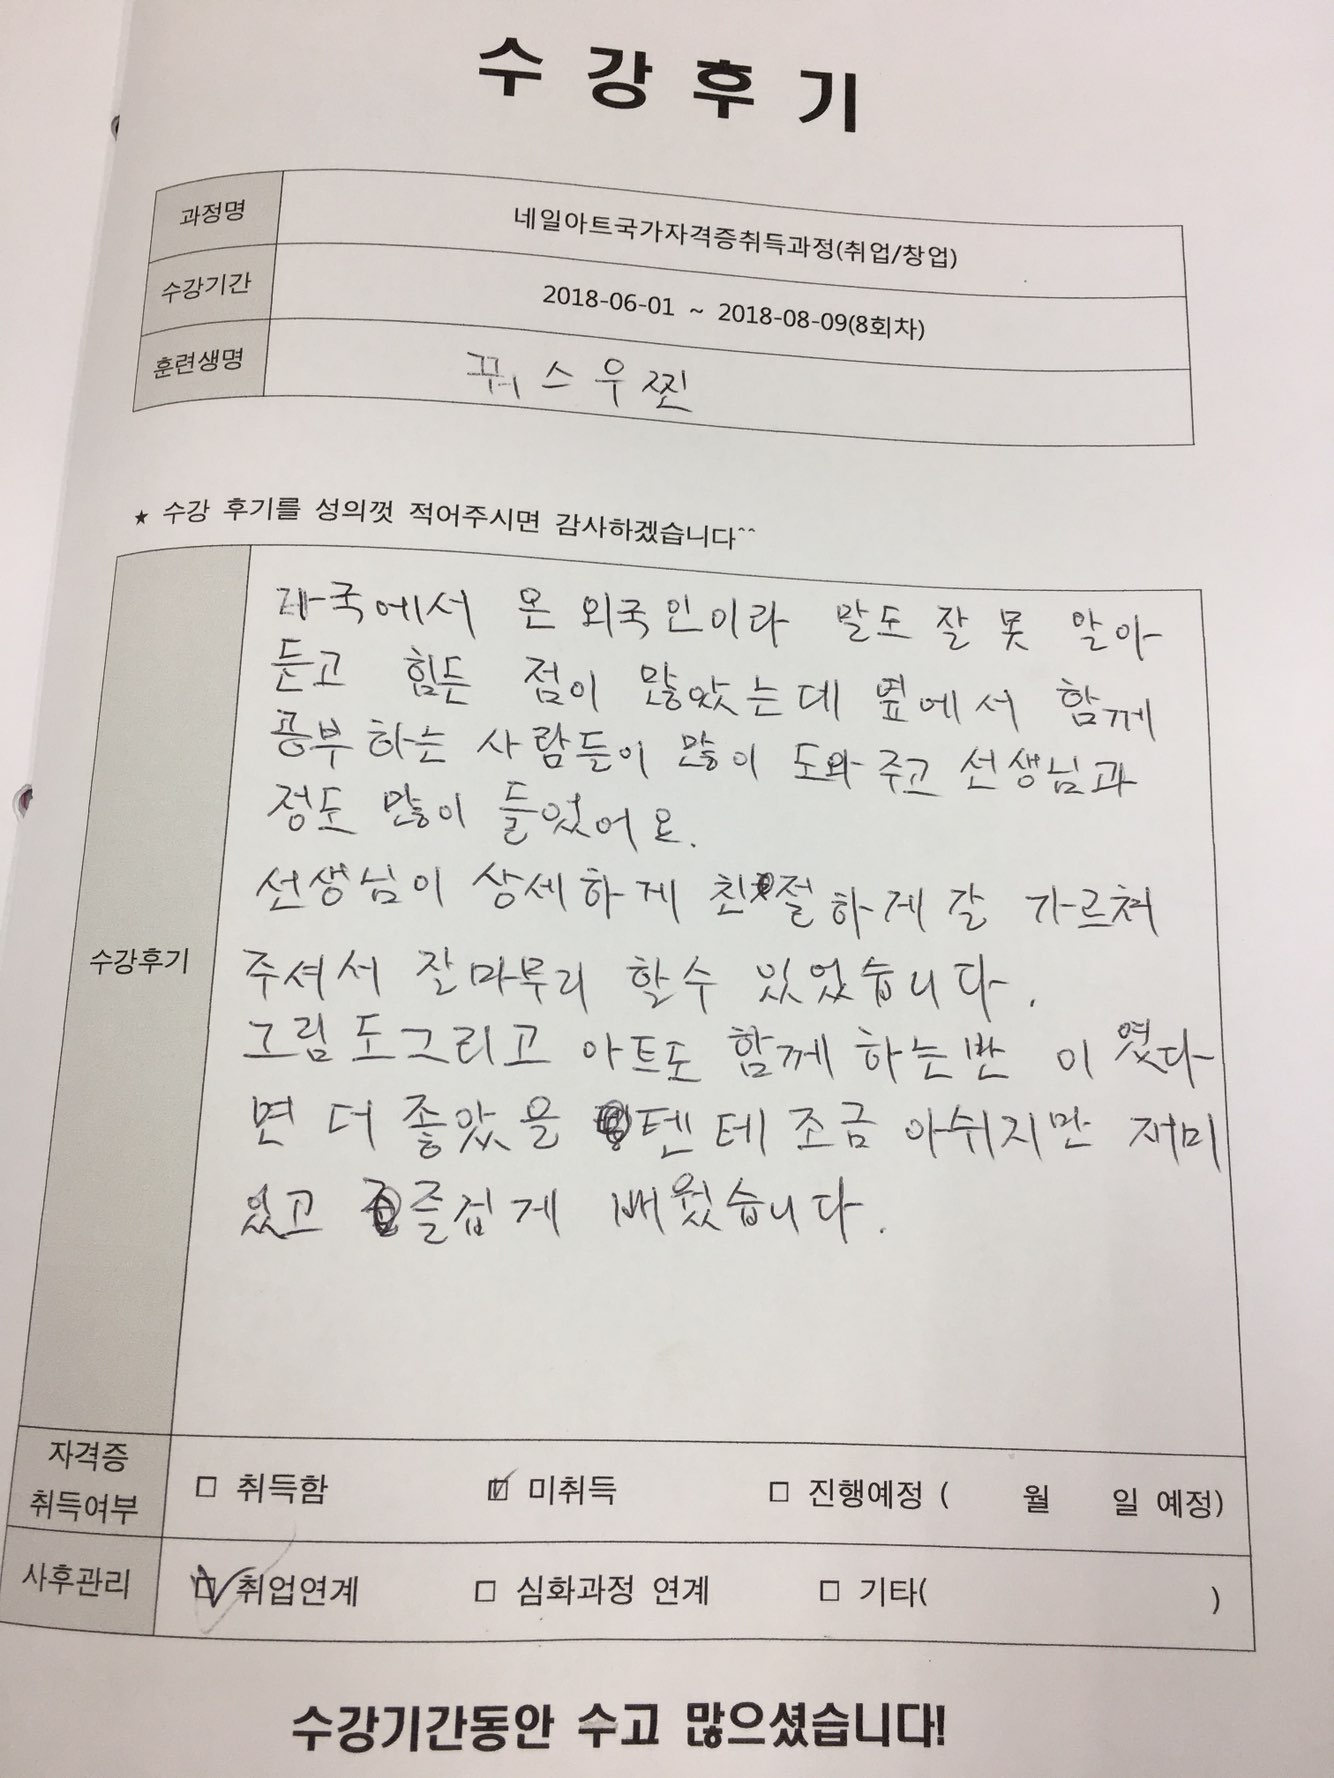 수강후기
과정명 네일아트국가자격증취득과정(취업/창업)
수강기간 2018-06-01 ~ 2018-08-09(8회차)
훈련생명 꿔스우찐
★ 수강 후기를 성의껏 적어주시면 감사하겠습니다^^
수강후기
타국에서 온 외국인이라 말도 잘 못 알아
듣고 힘든 점이 많았는데 옆에서 함께
공부 하는 사람들이 많이 도와 주고 선생님과
정도 많이 들었어요.
선생님이 상세하게 친절하게 잘 가르쳐
주셔서 잘마무리 할수 있었습니다.
그림도그리고 아트도 함께 하는반 이였다
면 더 좋았을 텐데 조금 아쉬지만 재미
있고 즐겁게 배웠습니다.
자격증
취득여부 □ 취득함 ☑ 미취득 □ 진행예정 ( 월 일 예정)
사후관리 ☑ 취업연계 □ 심화과정 연계 □ 기타( )
수강기간동안 수고 많으셨습니다!